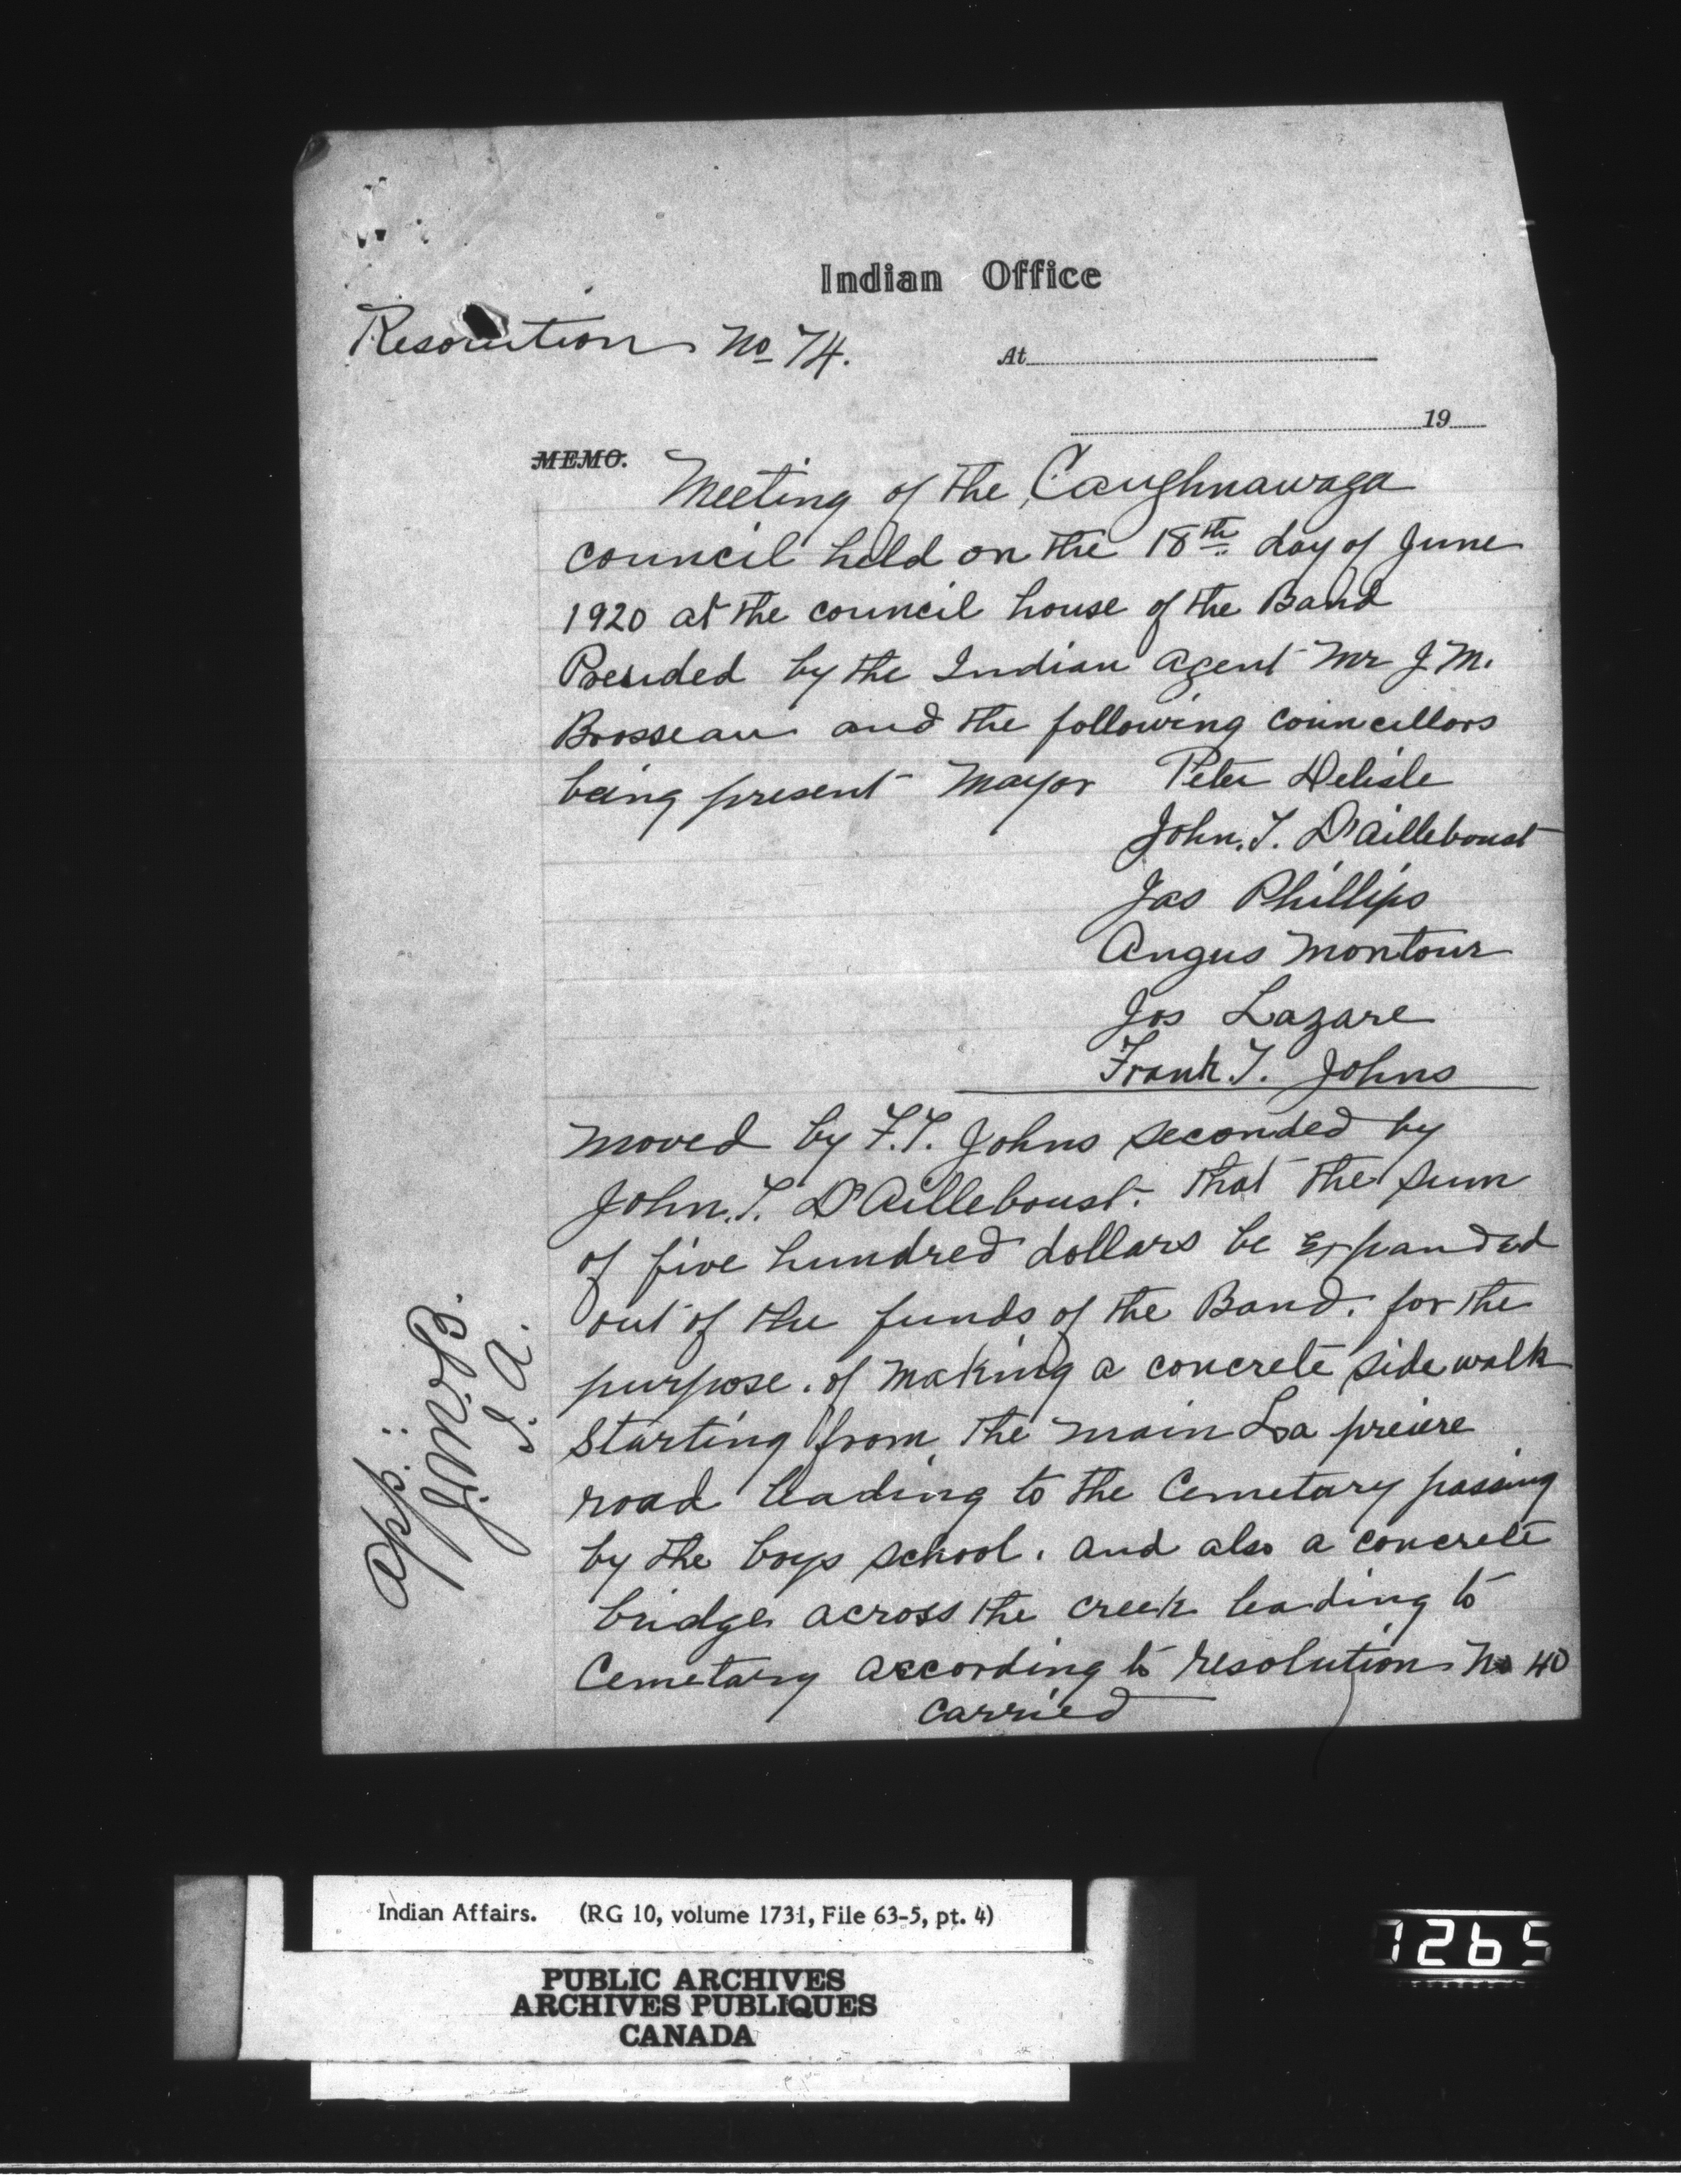 Indian Office
Resolution No 74.
At
19
MEMO.
Meeting of the Caughnawaga
council held on the 18th day of June
1920 at the council house of the Band
Presided by the Indian agent Mr J. M.
Brosseau and the following councillors
being present Mayor Peter Delisle
John. T. D'Ailleboust
Jas Phillips
Angus Montour
Jos Lazare
Frank T. Johns
moved by F.T. Johns seconded by
John. T. D'Ailleboust. that the sum
of five hundred dollars be expanded
out of the funds of the Band. for the
purpose. of making a concrete side walk
starting from the main La preiere
road leading to the Cemetary passing
by the boys school. and also a concrete
bridge across the creek leading to
Cemetary according to resolution No 40
carried
app.
J.M.B.
I. A.
Indian Affairs. (RG 10, volume 1731, File 63-5, pt. 4)
PUBLIC ARCHIVES
ARCHIVES PUBLIQUES
CANADA
1265